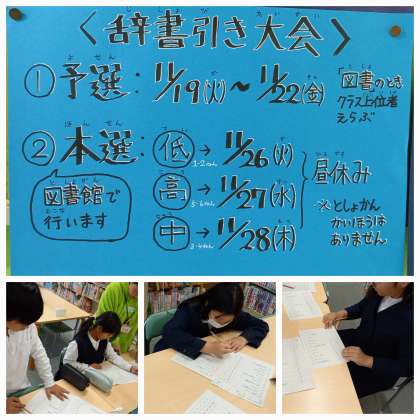 〈辞書引き大会〉
①予選：11/19(火)～11/22(金)
「図書のとき
クラス上位者
えらぶ
②本選：
図書館で
行います
低→11/26(火)
1・2ねん
高→11/27(水)
5・6ねん
中→11/28(木)
3・4ねん
昼休み
※としょかん
かいほうは
ありません